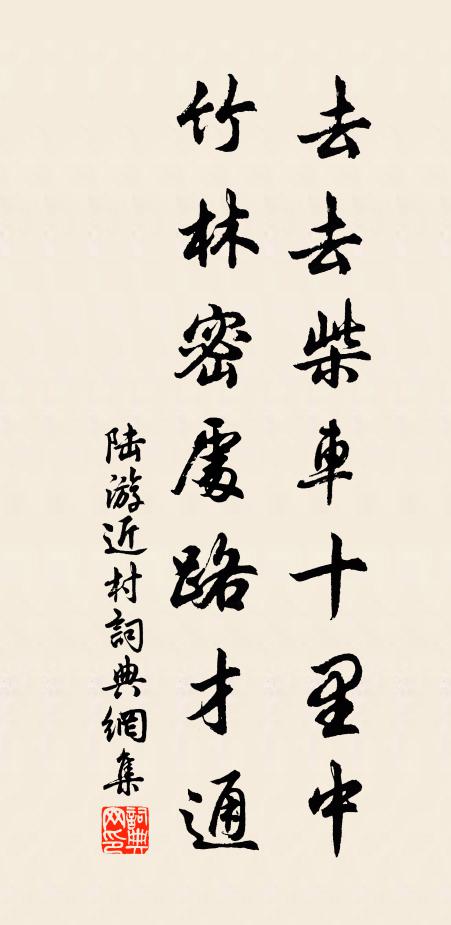 去去柴車十里中
竹林密處路才通
陸游近村詞典網集
詞典网印